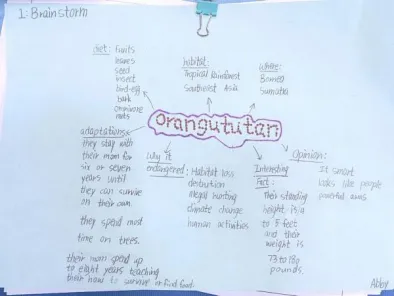 1: Brainstorm
diet: fruits
leaves
seed
insect
bird-egg
bark
omnivore
nuts
habitat:
Tropical Rainforest
Southeast Asia
Where:
Borneo
Sumatra
orangututan
adaptations:
they stay with
their mom for
six or seven
years until
they can survive
on their own.
they spend most
time on trees.
their mom spend up
to eight years teaching
their how to survive or find food.
Why it
endangered:
Habitat loss
illegal hunting
climate change
human activities
Interesting
Fact:
Their standing
height is
to 5 feet
and their
weight is
73 to 180
pounds.
Opinion:
It smart
looks like people
powerful arms
Abby